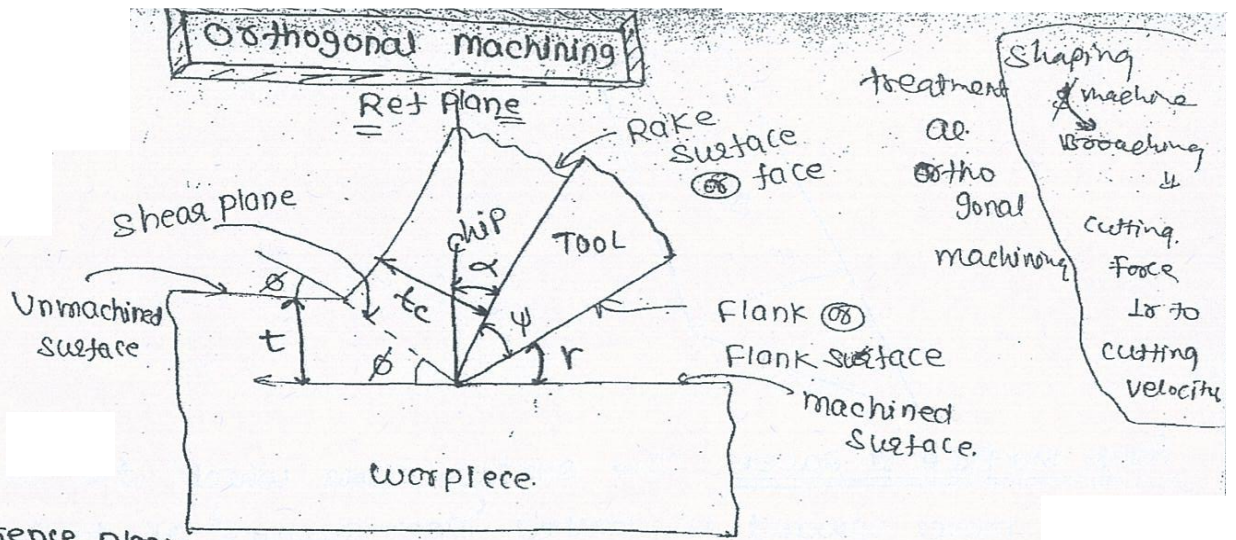 Orthogonal machining
Ref plane
Rake
surface
or face
Shear plane
chip
TOOL
α
ϕ
tc
Unmachined
surface
t
ϕ
ψ
r
Flank or
Flank surface
machined
surface.
worpiece.
treatment
as
ortho
gonal
machining
Shaping
machine
Broaching
cutting.
force
Ir to
cutting
velocity